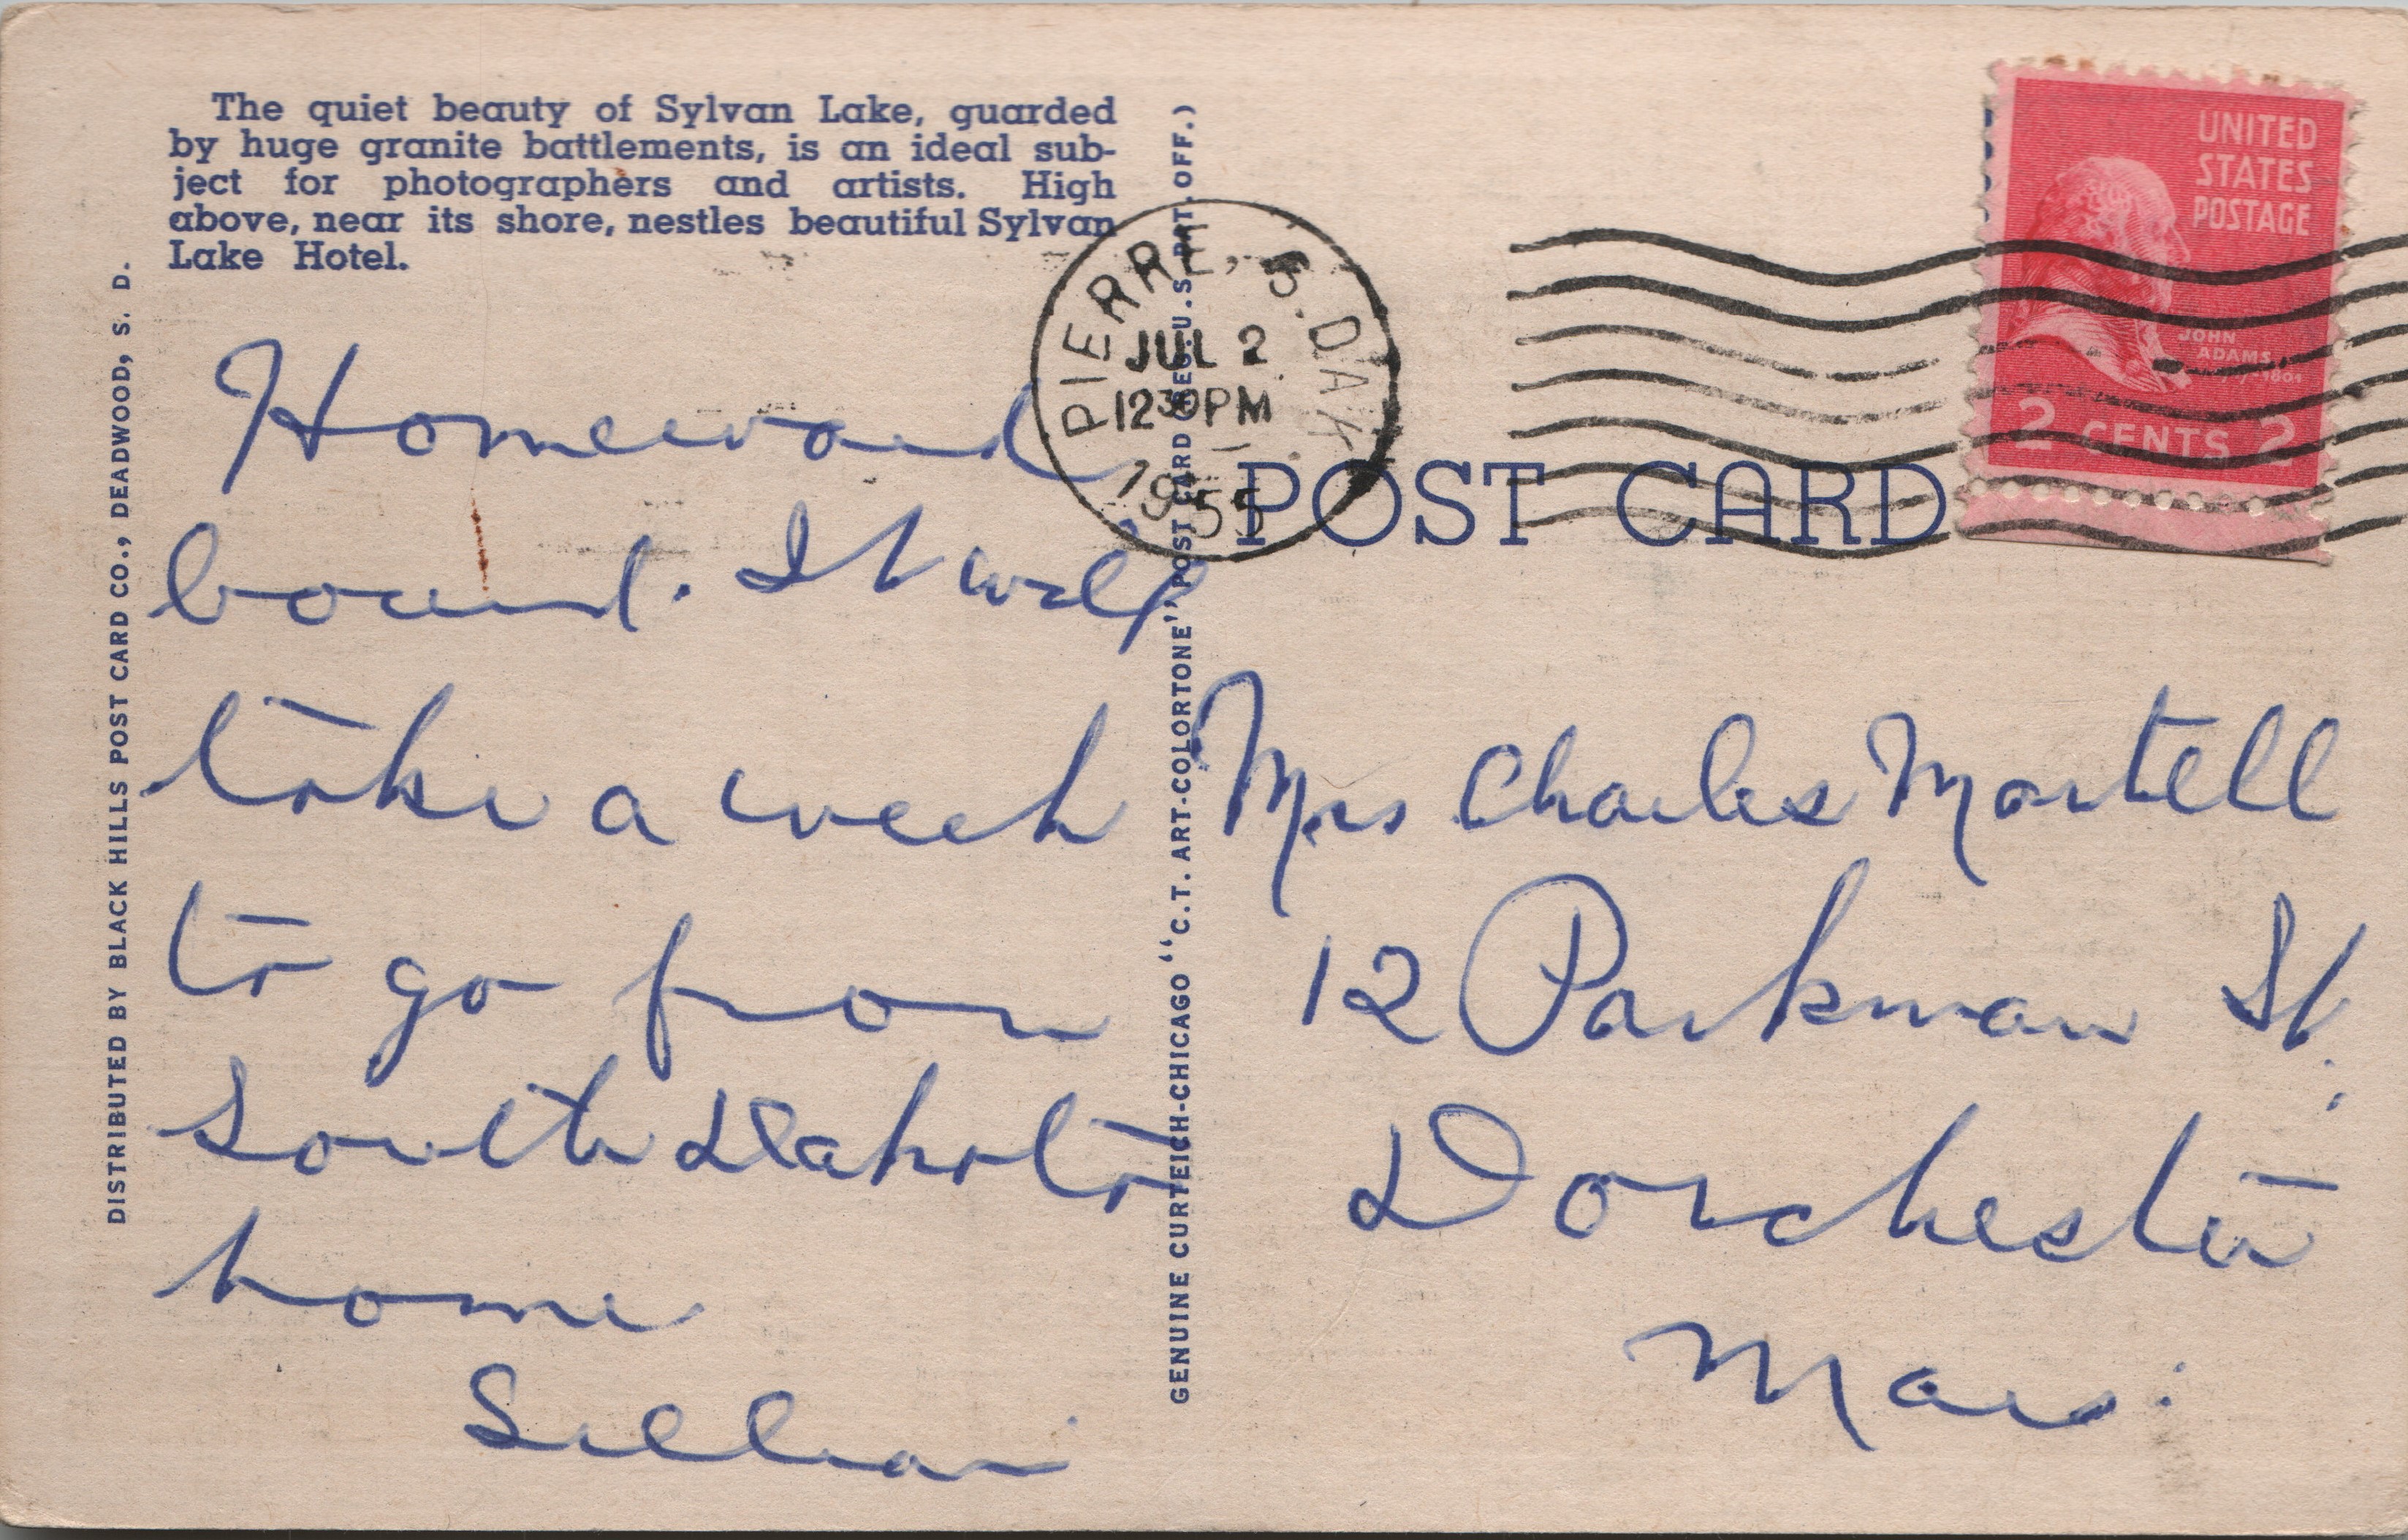 The quiet beauty of Sylvan Lake, guarded
by huge granite battlements, is an ideal sub-
ject for photographers and artists. High
above, near its shore, nestles beautiful Sylvan
Lake Hotel.
DISTRIBUTED BY BLACK HILLS POST CARD CO., DEADWOOD, S. D.
Homeward
bound. It will
take a week
to go from
South Dakota
home
Lillian
GENUINE CURTEICH-CHICAGO "C.T. ART-COLORTONE" POST CARD (REG. U.S. PAT. OFF.)
PIERRE, S. DAK
JUL 2
12 30 PM
1955
POST CARD
UNITED
STATES
POSTAGE
JOHN
ADAMS
2 CENTS 2
Mrs Charles Martell
12 Parkman St.
Dorchester
Mass.